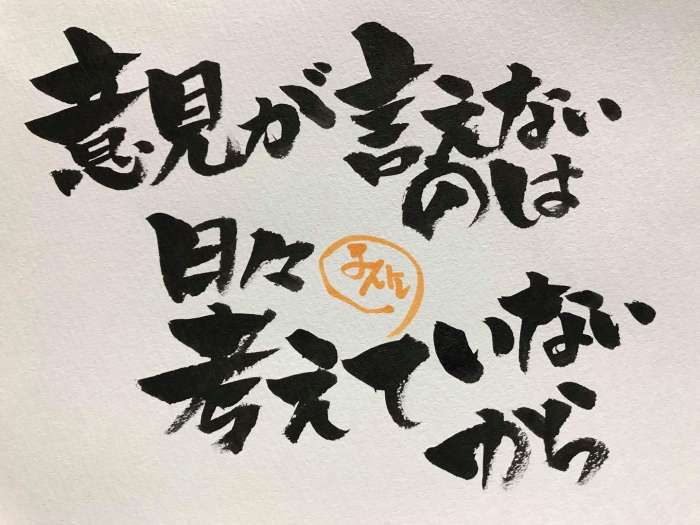 意見が言えない
のは
日々
考えていない
から